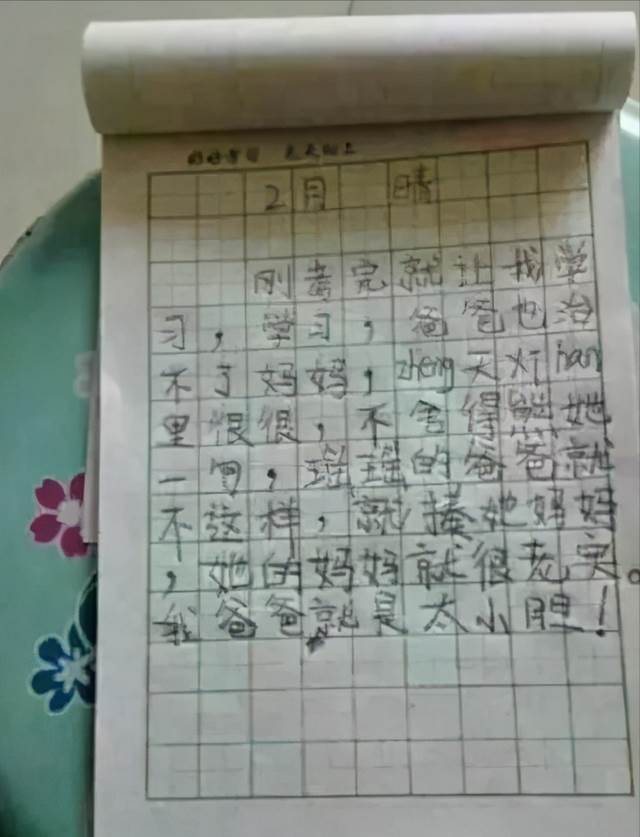 好好学习 天天向上
2月 晴
刚考完就让我学
习，学习，爸爸也治
不了妈妈，zheng天 han
里很很，不舍得熊她
一句，瑶瑶的爸爸就
不这样，就揍她妈妈
，她的妈妈就很老实。
我爸爸就是太小胆！